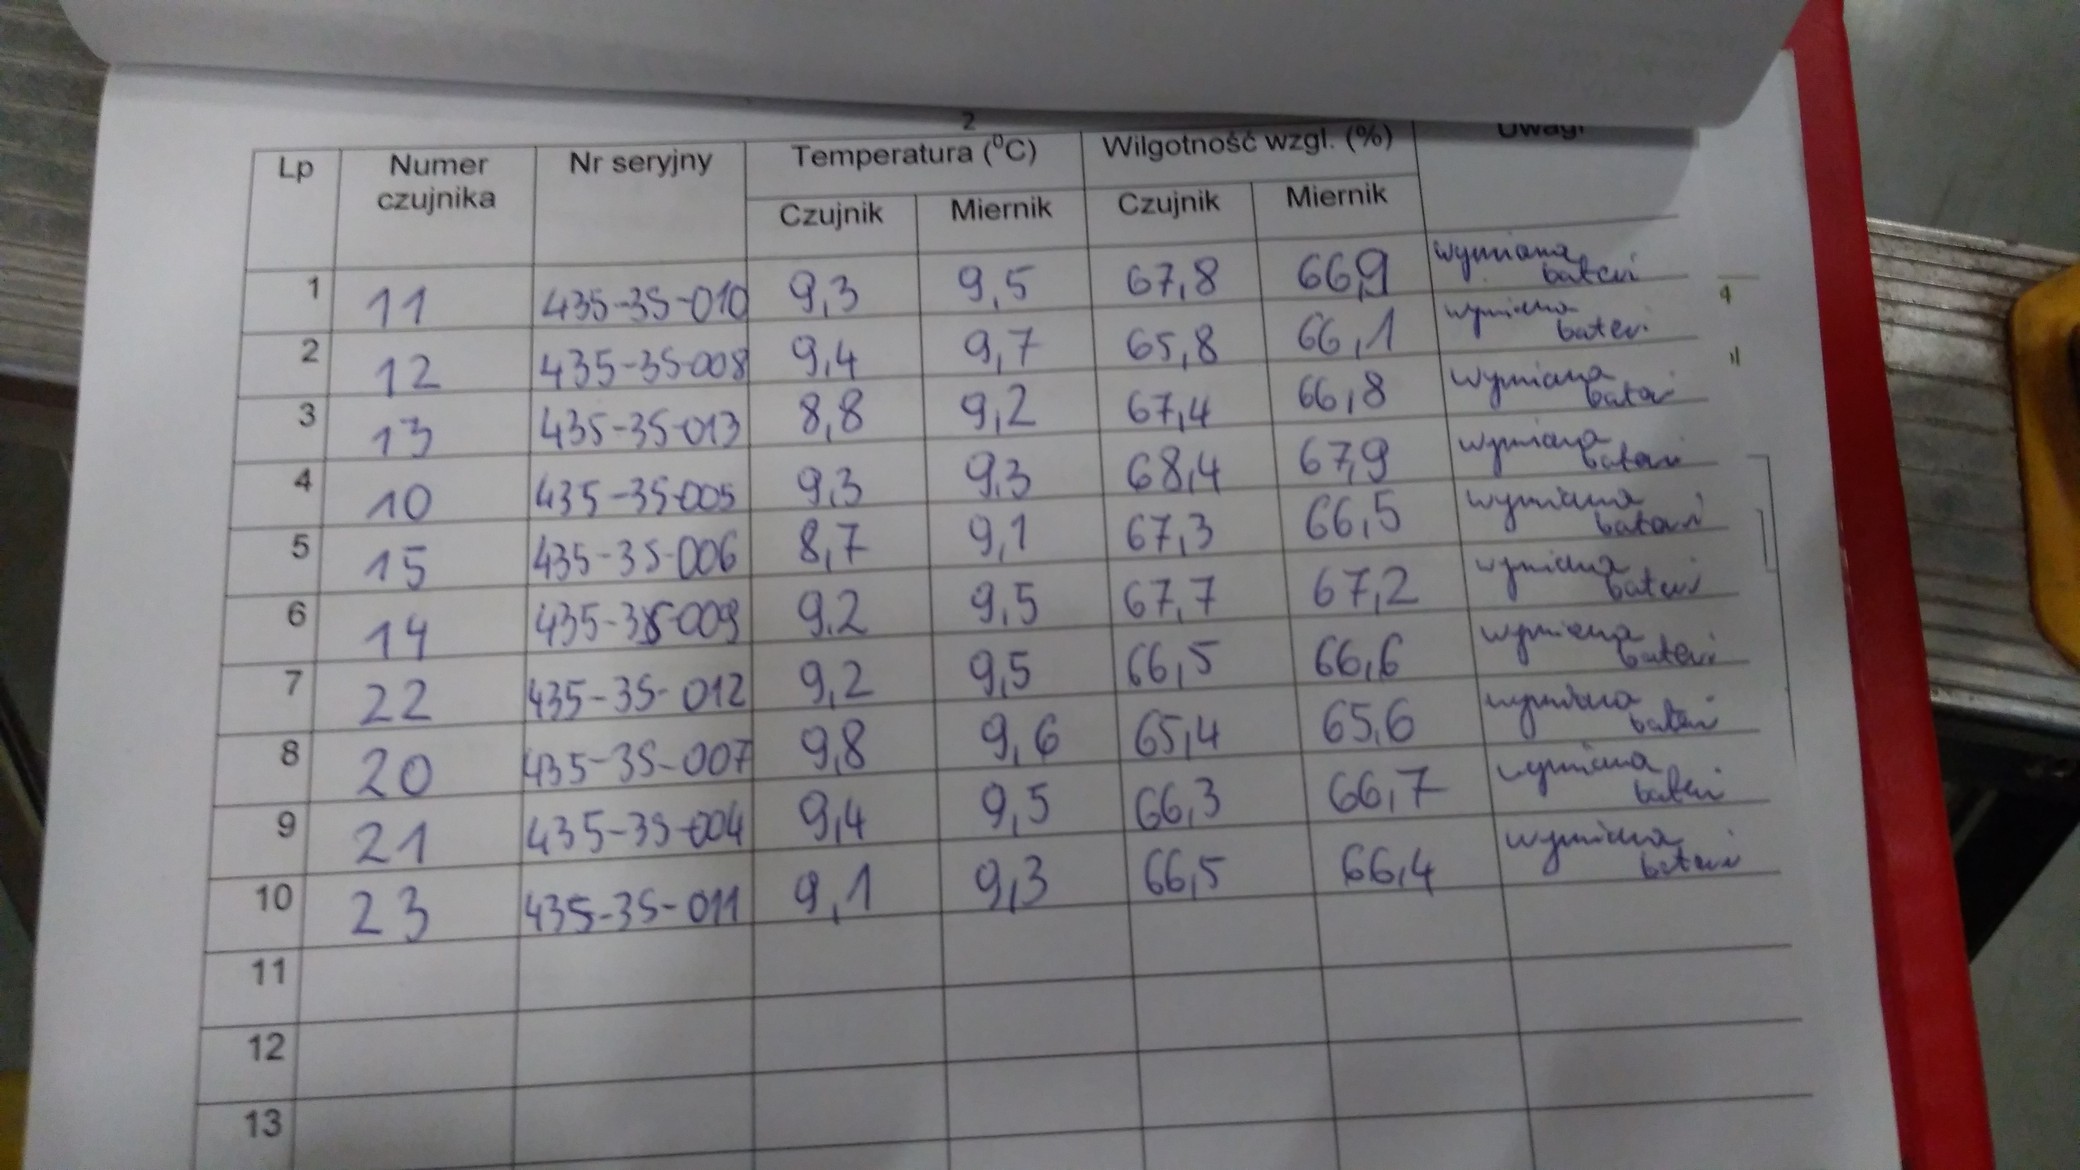 2
Lp Numer czujnika Nr seryjny Temperatura (⁰C) Wilgotność wzgl. (%) Uwagi
Czujnik Miernik Czujnik Miernik
1 11 435-35-010 9,3 9,5 67,8 66,9 wymiana baterii
2 12 435-35-008 9,4 9,7 65,8 66,1 wymiana baterii
3 13 435-35-013 8,8 9,2 67,4 66,8 wymiana baterii
4 10 435-35-005 9,3 9,3 68,4 67,9 wymiana baterii
5 15 435-35-006 8,7 9,1 67,3 66,5 wymiana baterii
6 14 435-35-009 9,2 9,5 67,7 67,2 wymiana baterii
7 22 435-35-012 9,2 9,5 66,5 66,6 wymiana baterii
8 20 435-35-007 9,8 9,6 65,4 65,6 wymiana baterii
9 21 435-35-004 9,4 9,5 66,3 66,7 wymiana baterii
10 23 435-35-011 9,1 9,3 66,5 66,4 wymiana baterii
11
12
13